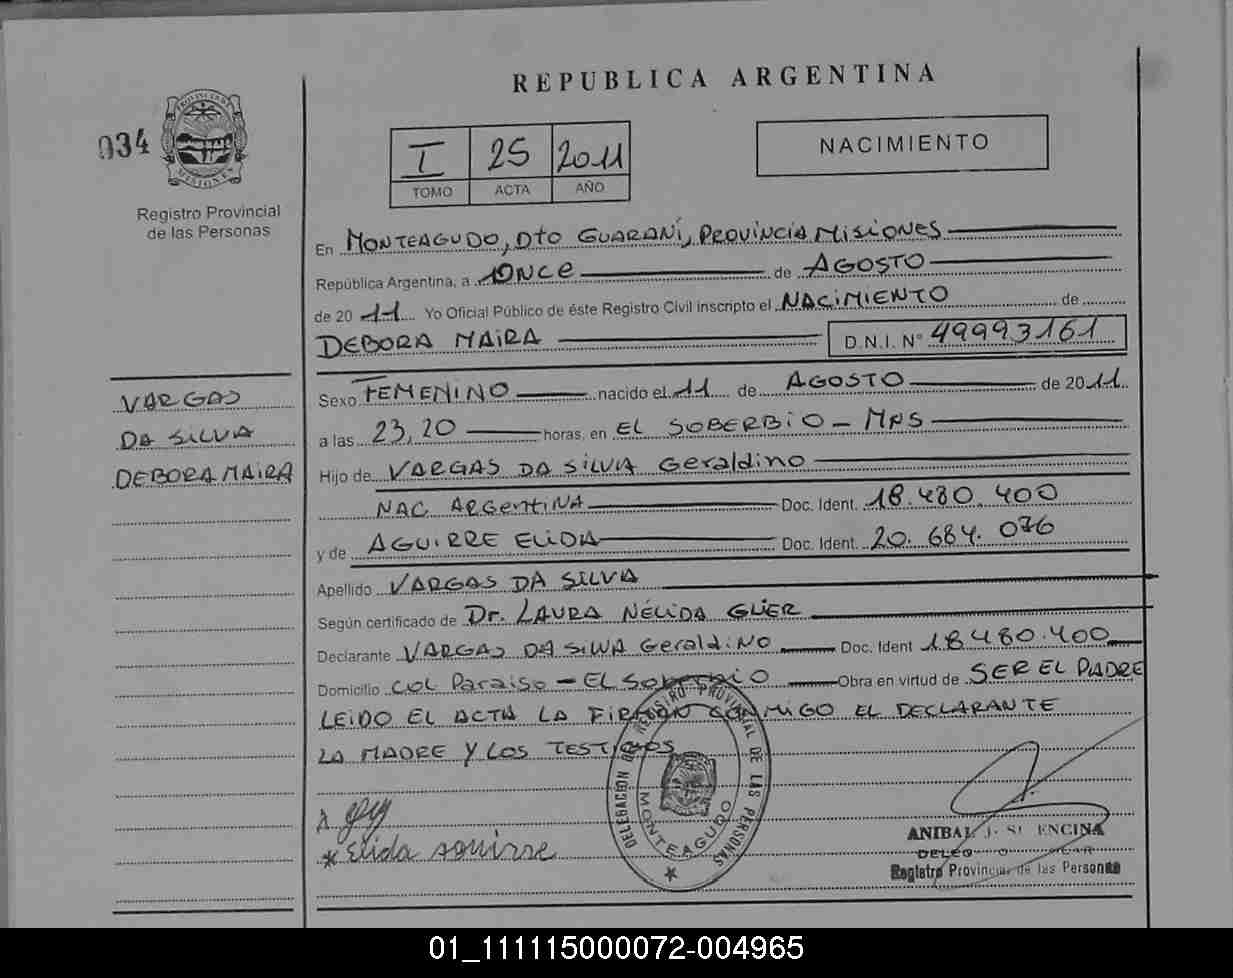 REPUBLICA ARGENTINA
034
PROVINCIA DE
MISIONES
Registro Provincial
de las Personas
I 25 2011
TOMO ACTA AÑO
NACIMIENTO
En MONTEAGUDO, Dto GUARANÍ, PROVINCIA MISIONES
República Argentina, a ONCE de AGOSTO
de 20 11 Yo Oficial Público de éste Registro Civil inscripto el NACIMIENTO de
DEBORA MAIRA D.N.I. N° 49993161
VARGAS
DA SILVA
DEBORA MAIRA
Sexo FEMENINO nacido el 11 de AGOSTO de 2011
a las 23,20 horas, en EL SOBERBIO - MNS
Hijo de VARGAS DA SILVA Geraldino
NAC ARGENTINA Doc. Ident. 18.480.400
y de AGUIRRE ELIDA Doc. Ident. 20.684.076
Apellido VARGAS DA SILVA
Según certificado de Dr. LAURA NÉLIDA GLIER
Declarante VARGAS DA SILVA Geraldino Doc. Ident 18480.400
Domicilio COL Paraiso - EL Soberbio Obra en virtud de SER EL PADRE
LEIDO EL ACTA LA FIRMAN CONMIGO EL DECLARANTE
LA MADRE Y LOS TESTIGOS
DELEGACION DEL REGISTRO PROVINCIAL DE LAS PERSONAS
MONTEAGUDO
Elida Aguirre
ANIBAL J.
Registro Provincial de las Personas
01_111115000072-004965